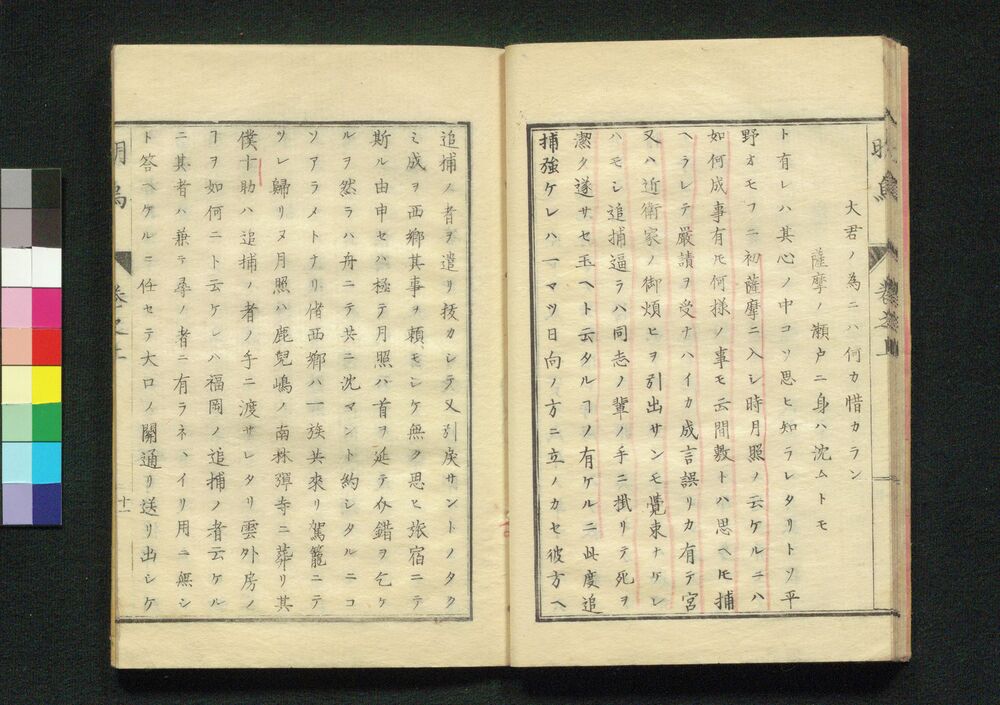 大君ノ為ニハ何カ惜カラン
薩摩ノ瀬戸ニ身ハ沈ムトモ
ト有レハ其心ノ中コソ思ヒ知ラレタリトソ平
野オモフニ初薩摩ニ入シ時月照ノ云ケルニハ
如何成事有𪜈何様ノ事モ云間敷トハ思ヘ𪜈捕
ヘラレテ嚴請ヲ受ナハイカ成言誤リカ有テ宮
又ハ近衛家ノ御煩ヒヲ引出サンモ覺束ナケレ
ハモシ追捕逼ラハ同志ノ輩ノ手ニ掛リテ死ヲ
潔タ遂サセ玉ヘト云タルヿノ有ケルニ此度追
捕強ケレハ一マツ日向ノ方ニ立ノカセ彼方ヘ
追捕ノ者ヲ遣リ拔カシテ又引戻サントノタク
ミ成ヲ西郷其事ヲ頼モシケ無ク思ヒ旅宿ニテ
斯ル由申セハ極テ月照ハ首ヲ延テ介錯ヲ乞ケ
ルヲ然ラハ舟ニテ共ニ沈マント約シタルニコ
ソアラメトナリ偖西郷ハ一族共來リ駕籠ニテ
ツレ歸リヌ月照ハ鹿兒嶋ノ南林禪寺ニ葬リ其
僕十助ハ追捕ノ者ノ手ニ渡サレタリ雲外房ノ
ヿヲ如何ニト云ケレハ福岡ノ追捕ノ者云ケル
ニ其者ハ兼テ尋ノ者ニ有ラネハイリ用ニ無シ
ト答ヘケルニ任セテ大口ノ關通リ送リ出シケ
卷之上
十一